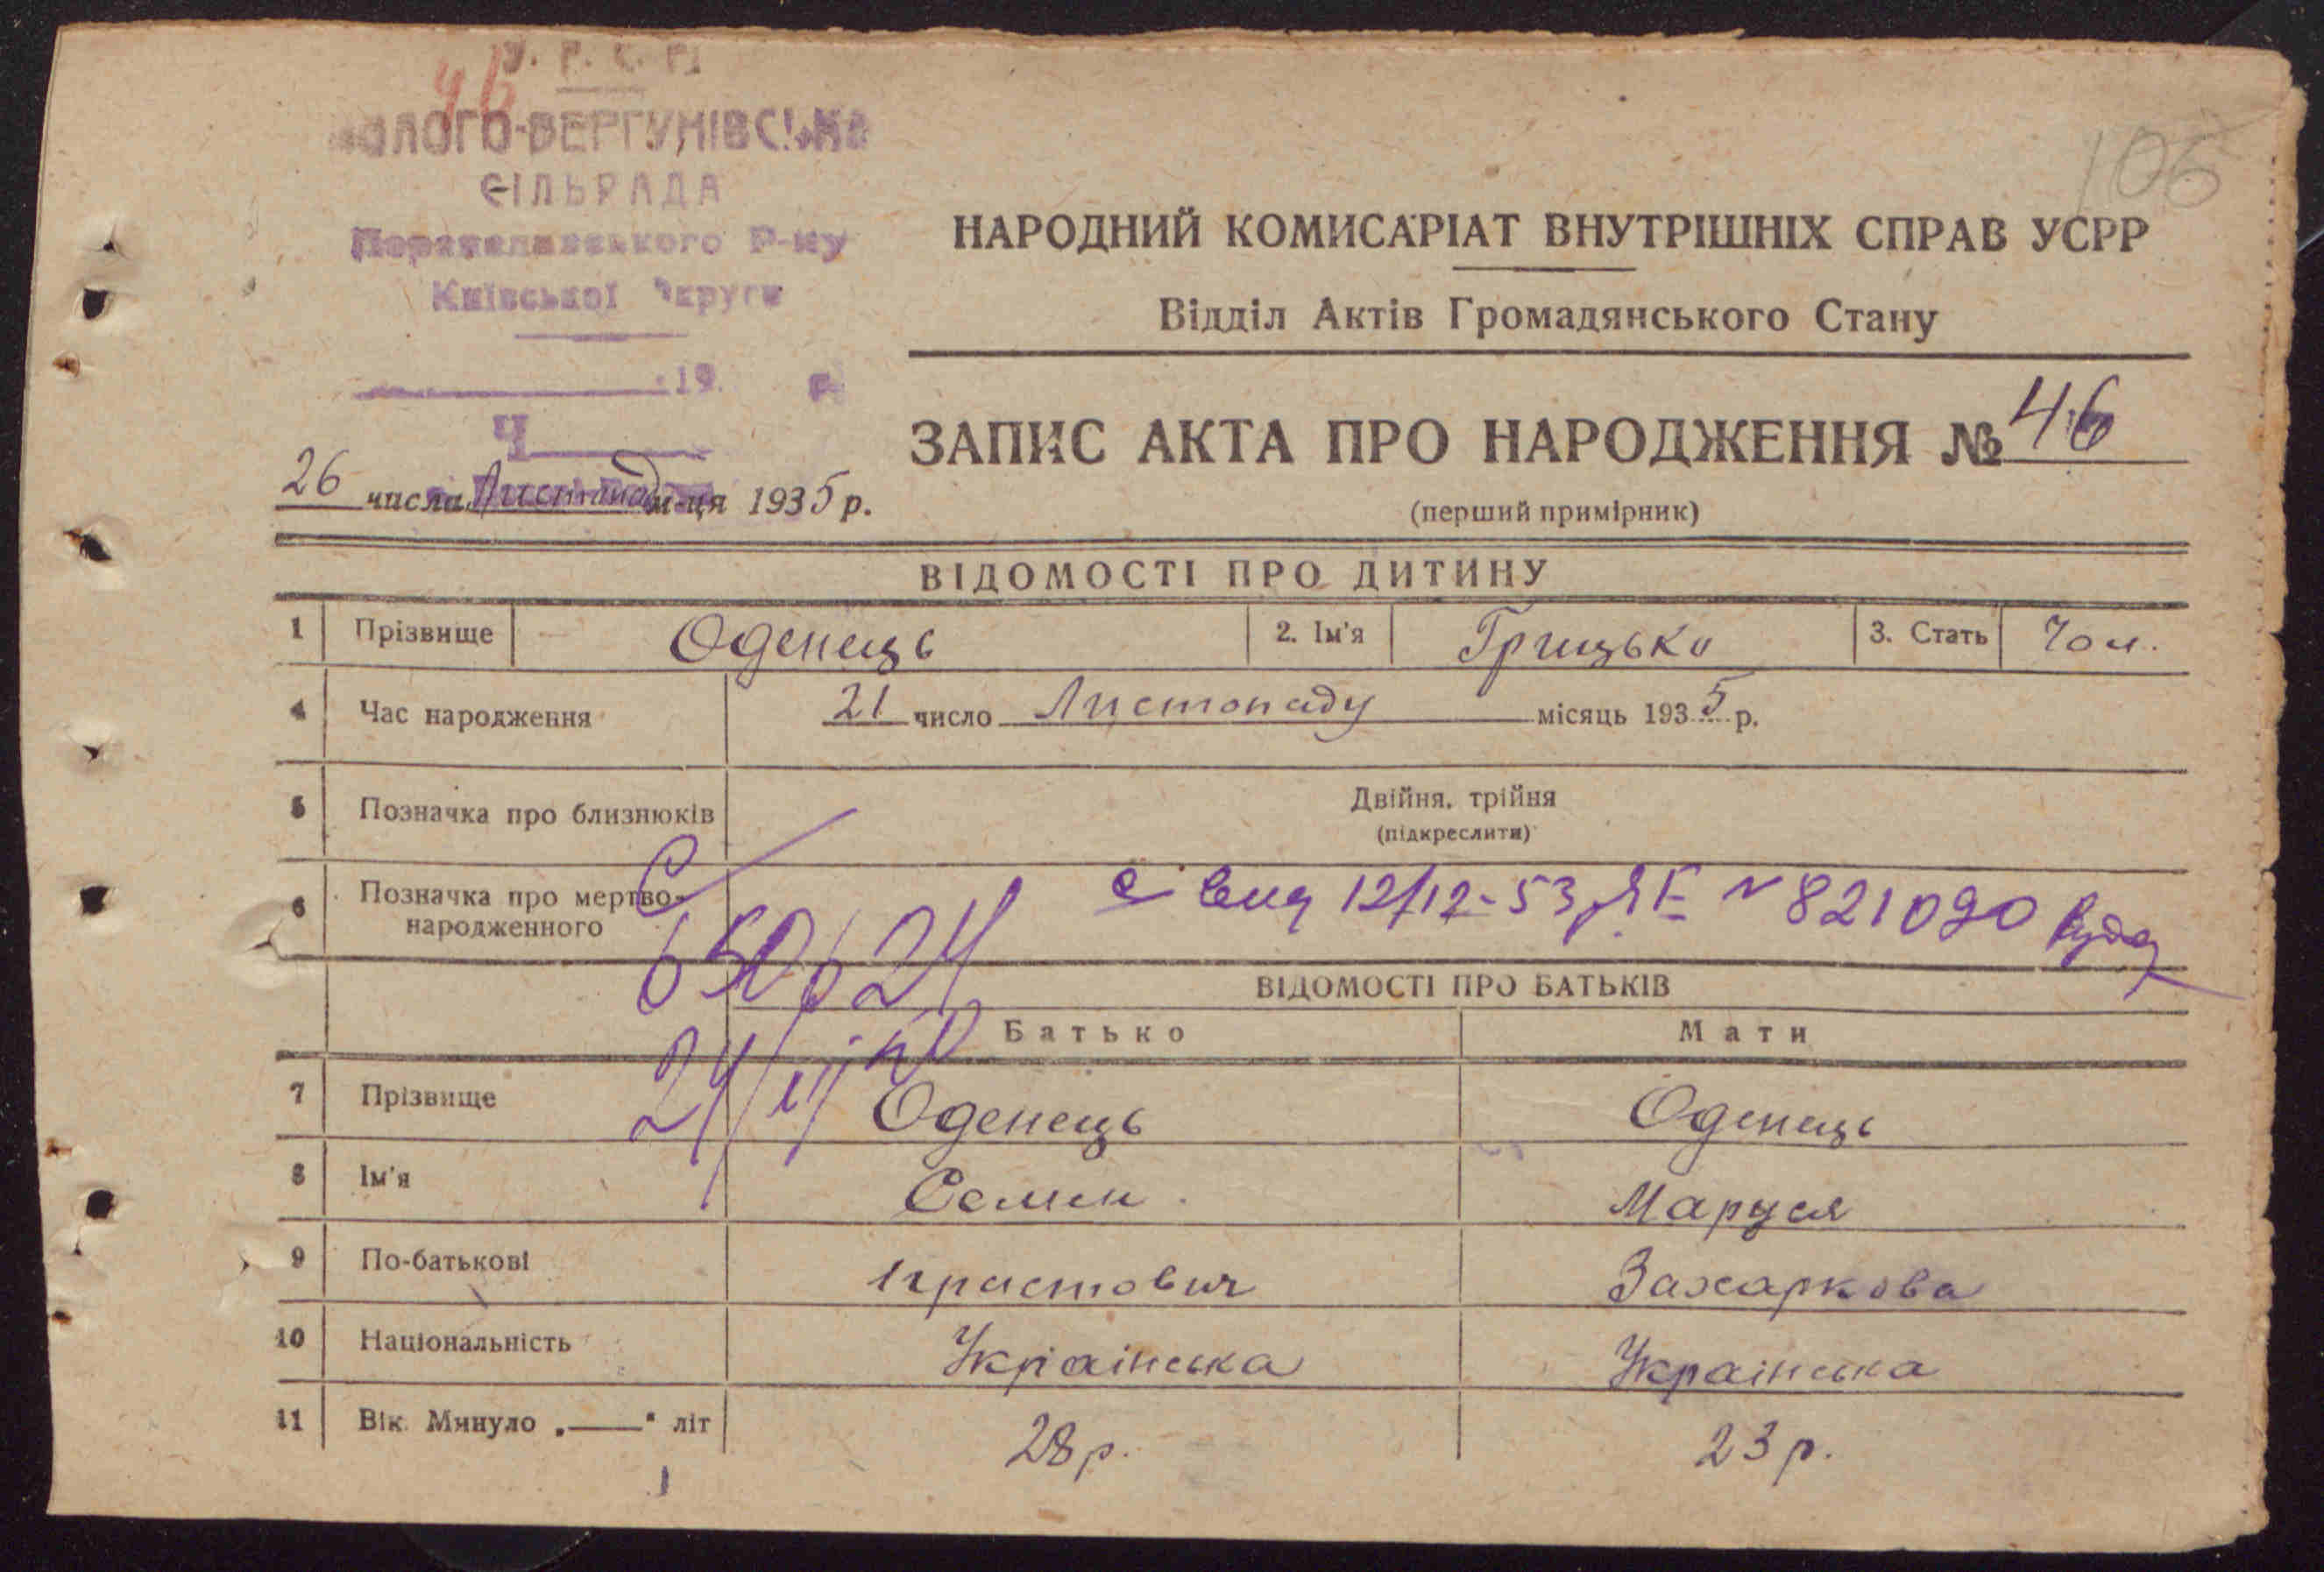 У. Р. С. Р.
46
ВОЛОГО-ВЕРГУНІВСЬКА
СІЛЬРАДА
Переяславського Р-ну
Київської Округи
19 р.
Ч
106
НАРОДНИЙ КОМИСАРІАТ ВНУТРІШНІХ СПРАВ УСРР
Відділ Актів Громадянського Стану
ЗАПИС АКТА ПРО НАРОДЖЕННЯ № 46
26 числа Листопад м-ця 1935 р.
(перший примірник)
ВІДОМОСТІ ПРО ДИТИНУ
1 Прізвище Оденець 2. Ім'я Грицько 3. Стать Чол.
4 Час народження 21 число Листопаду місяць 1935 р.
5 Позначка про близнюків Двійня, трійня
(підкреслити)
6 Позначка про мертво-
народженного
12/12-53 ЯЕ № 821090
650624
ВІДОМОСТІ ПРО БАТЬКІВ
Батько Мати
7 Прізвище Оденець Оденець
8 Ім'я Семен Маруся
9 По-батькові Христович Захаркова
10 Національність Українська Українська
11 Вік. Минуло „—" літ 28 р. 23 р.